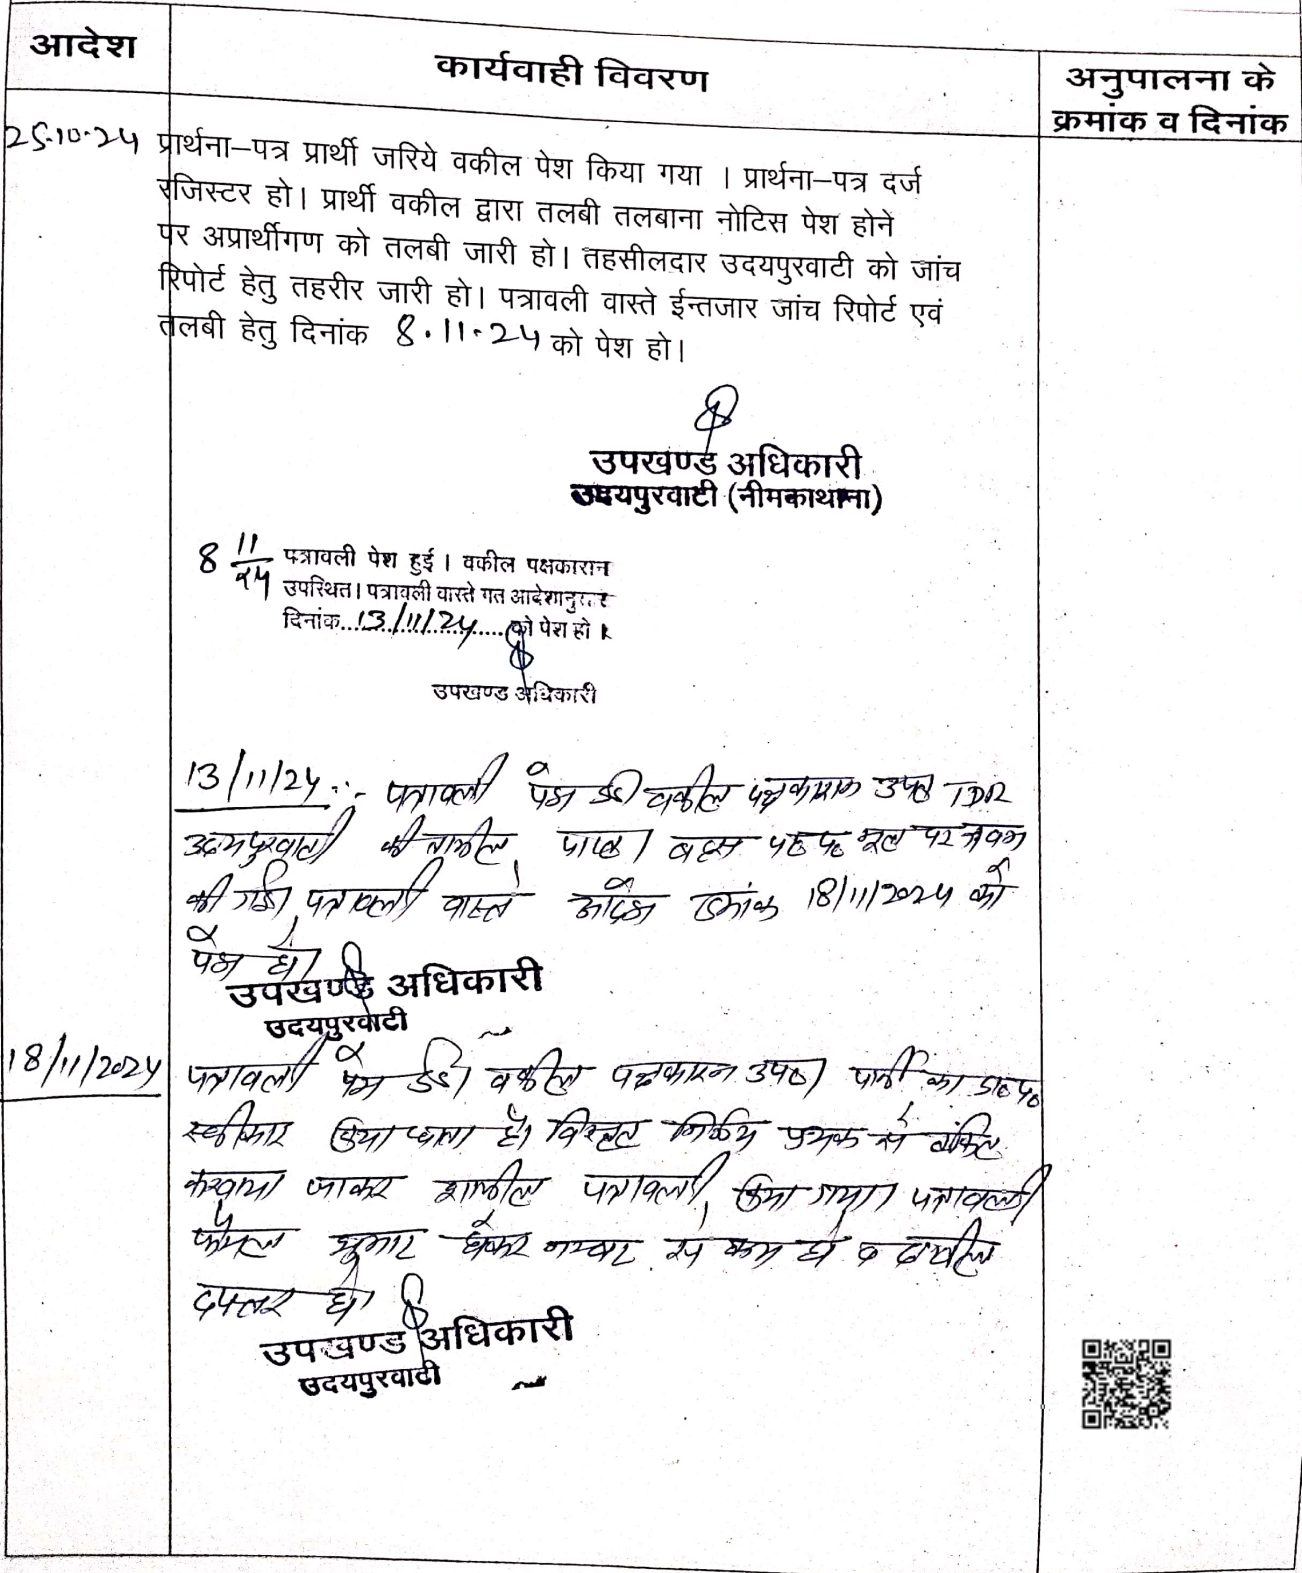 आदेश
कार्यवाही विवरण
अनुपालना के
क्रमांक व दिनांक
25.10.24 प्रार्थना–पत्र प्रार्थी जरिये वकील पेश किया गया । प्रार्थना–पत्र दर्ज
रजिस्टर हो। प्रार्थी वकील द्वारा तलबी तलबाना नोटिस पेश होने
पर अप्रार्थीगण को तलबी जारी हो। तहसीलदार उदयपुरवाटी को जांच
रिपोर्ट हेतु तहरीर जारी हो। पत्रावली वास्ते ईन्तजार जांच रिपोर्ट एवं
तलबी हेतु दिनांक 8.11.24 को पेश हो।
उपखण्ड अधिकारी
उदयपुरवाटी (नीमकाथाना)
8 11/24 पत्रावली पेश हुई । वकील पक्षकारान
उपस्थित। पत्रावली वास्ते गत आदेशानुसार
दिनांक 13/11/24 को पेश हो ।
उपखण्ड अधिकारी
13/11/24 पत्रावली पेश हुई। वकील पक्षकारान उप० TDR
उदयपुरवाटी की तामील प्राप्त। बहस मूल पर
की गई। पत्रावली वास्ते आदेश दिनांक 18/11/2024 को
पेश हो।
उपखण्ड अधिकारी
उदयपुरवाटी
18/11/2024 पत्रावली पेश हुई। वकील पक्षकारान उप०। प्रार्थी का प्रा०प०
स्वीकार किया जाता है। विस्तृत निर्णय पृथक से अंकित
करवाया जाकर शामील पत्रावली किया गया। पत्रावली
फैसल शुमार होकर नम्बर से कम हो व दाखील
दफ्तर हो।
उपखण्ड अधिकारी
उदयपुरवाटी